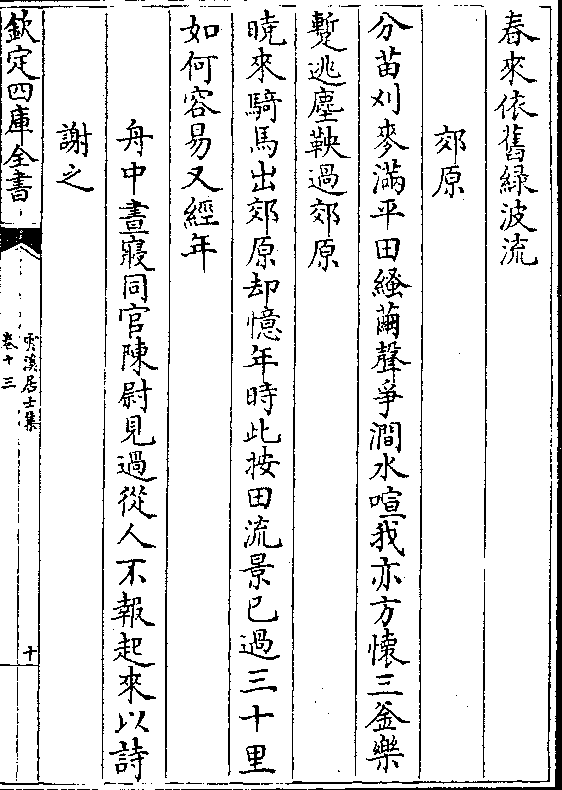 春來依舊綠波流
郊原
分苗刈麥滿平田繅繭聲爭澗水喧我亦方懷三釜樂
蹔逃塵鞅過郊原
曉來騎馬出郊原却憶年時此按田流景已過三十里
如何容易又經年
舟中晝寢同官陳尉見過從人不報起來以詩
謝之
欽定四庫全書
雲溪居士集
卷十三
十